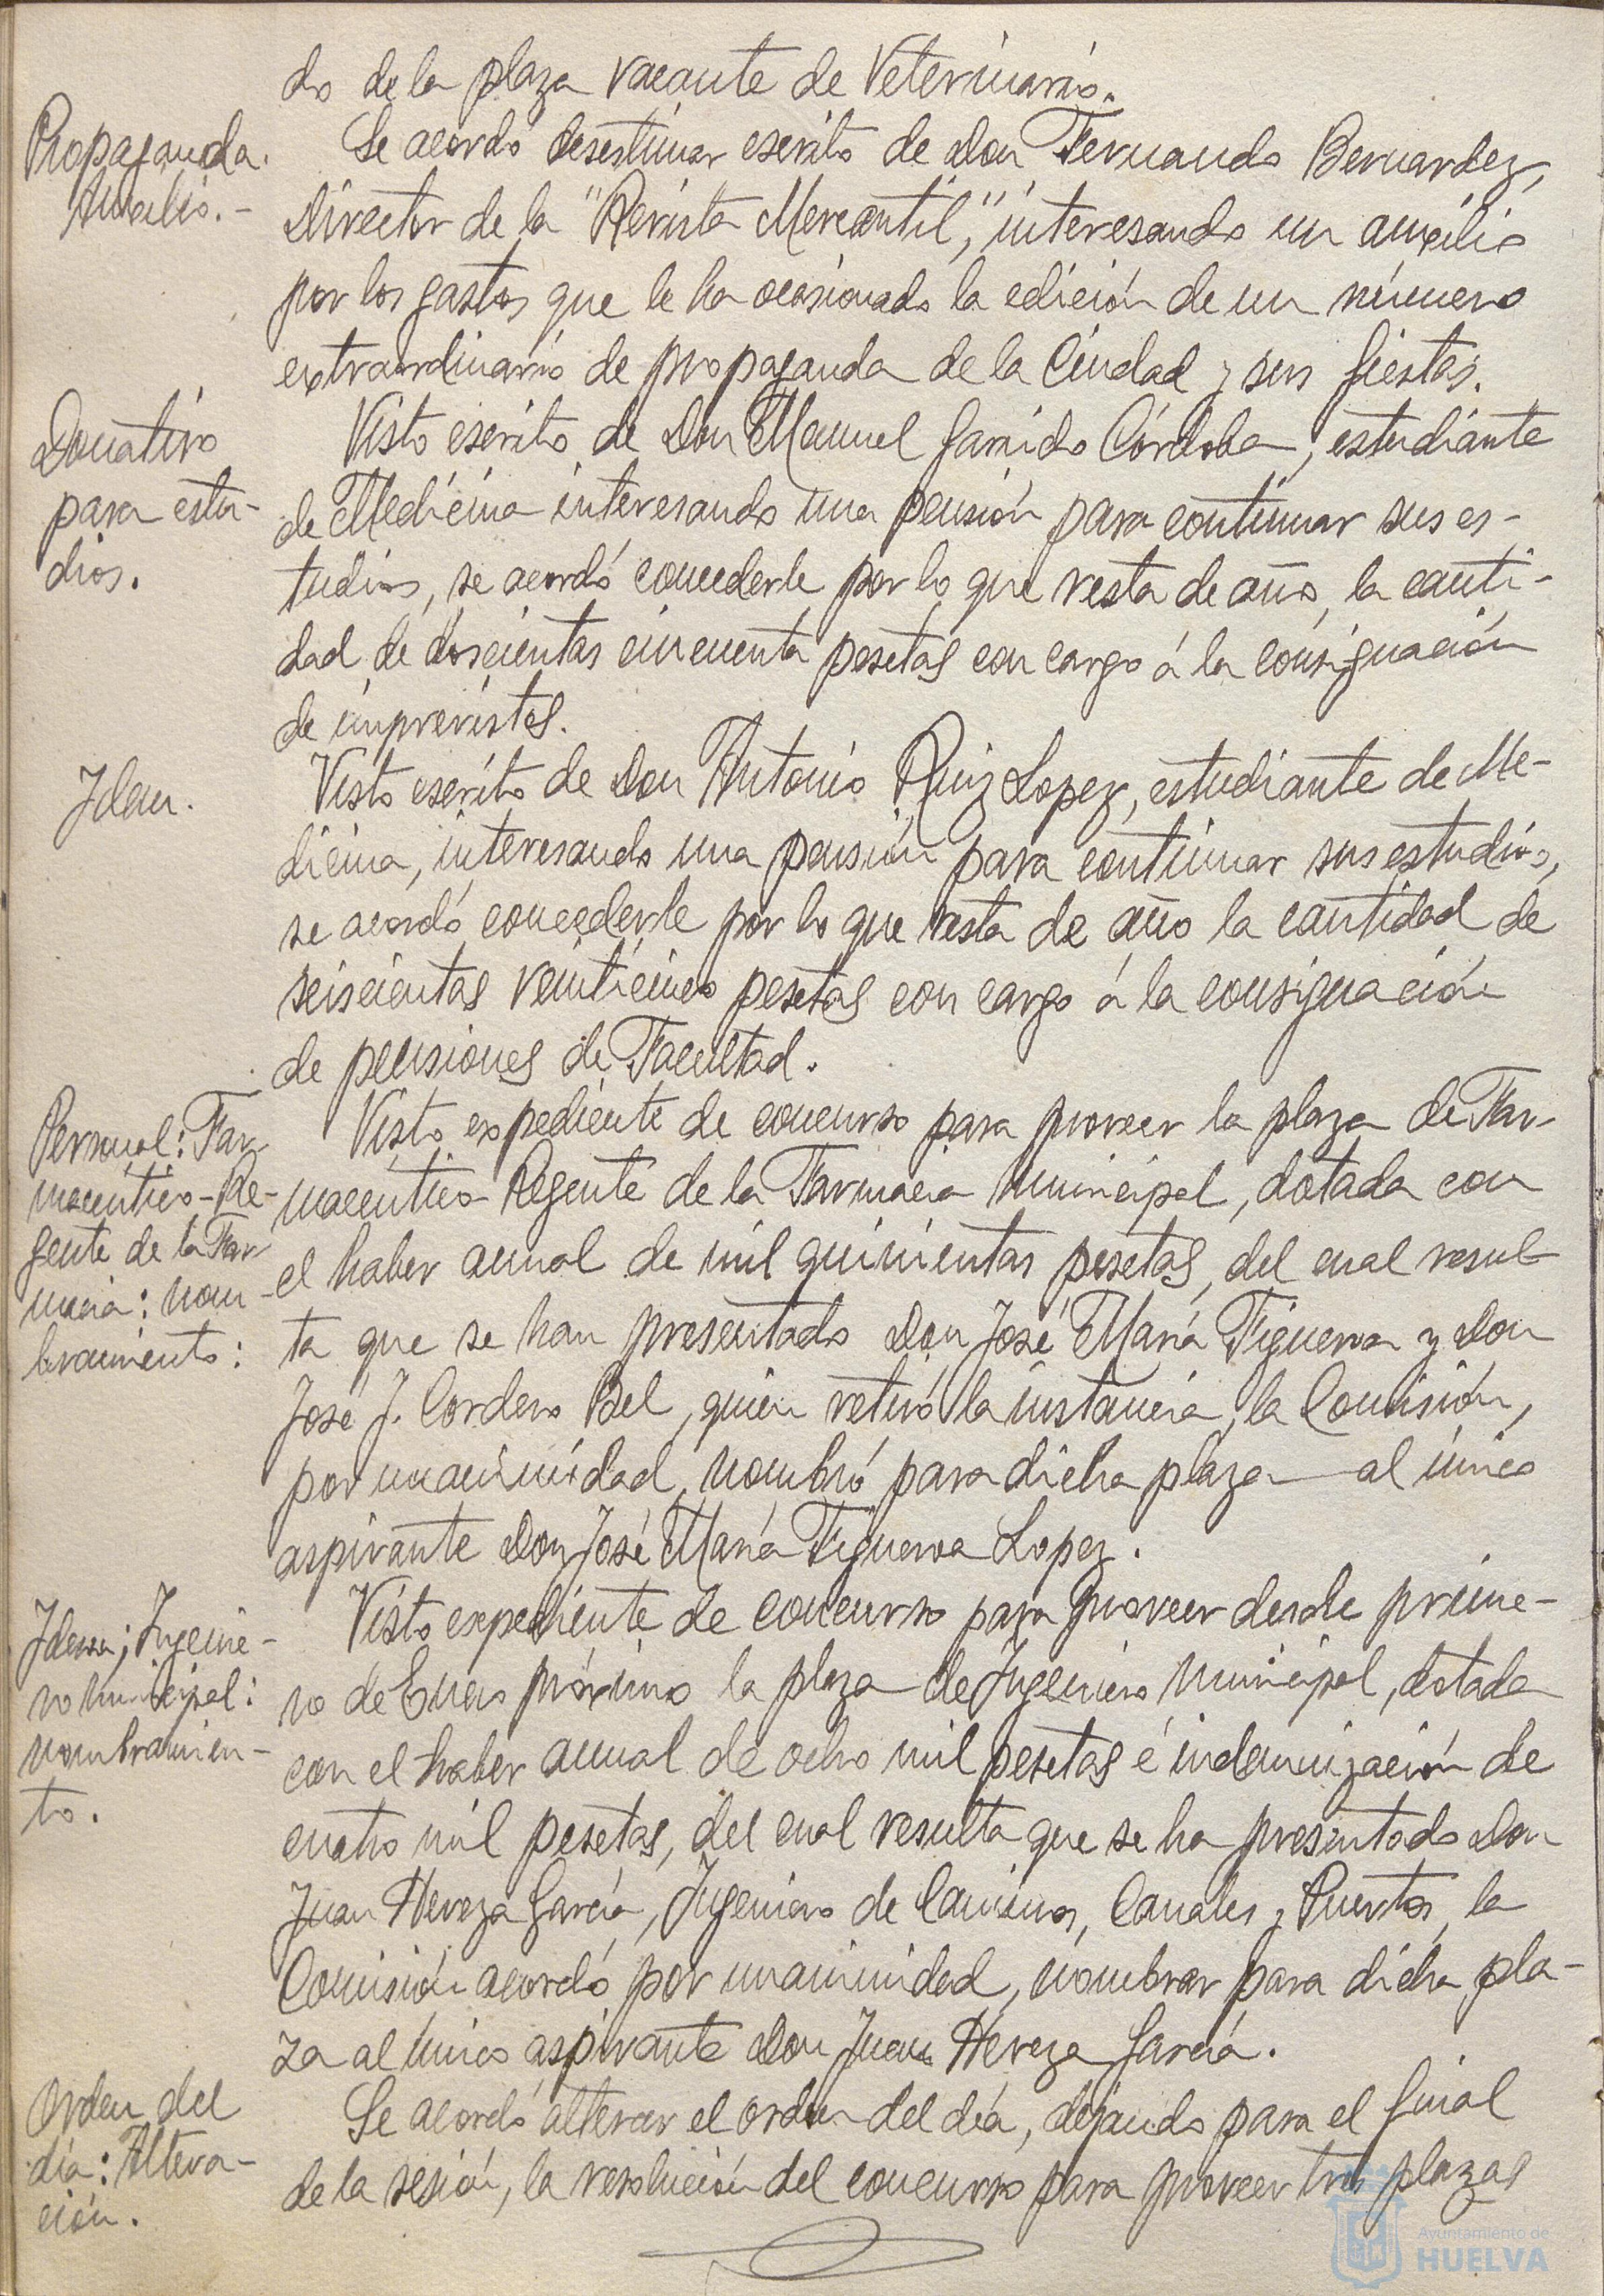 do de la plaza vacante de Veterinario.
Propaganda.
Auxilio.-
Se acordó desestimar escrito de Don Fernando Bernardez,
Director de la "Revista Mercantil", interesando un auxilio
por los gastos que le ha ocasionado la edición de un número
extraordinario de propaganda de la Ciudad y sus fiestas.
Donativo
para estu-
dios.
Visto escrito de Don Manuel Garrido Córdoba, estudiante
de Medicina interesando una pensión para continuar sus es-
tudios, se acordó concederle por lo que resta de año, la canti-
dad de doscientas cincuenta pesetas con cargo á la consignación
de imprevistos.
Idem.
Visto escrito de Don Antonio Ruiz Lopez, estudiante de Me-
dicina, interesando una pensión para continuar sus estudios,
se acordó concederle por lo que resta de año la cantidad de
seiscientas veinticinco pesetas con cargo á la consignación
de pensiones de Facultad.
Personal: Far-
macéutico-Re-
gente de la Far-
macia: nom-
bramiento:
Visto expediente de concurso para proveer la plaza de Far-
macéutico Regente de la Farmacia municipal, dotada con
el haber anual de mil quinientas pesetas, del cual resul-
ta que se han presentado Don José María Figueroa y Don
José J. Cordero Bel, quien retiró la instancia, la Comisión,
por unanimidad, nombró para dicha plaza al único
aspirante Don José María Figueroa Lopez.
Idem; Ingenie-
ro municipal:
nombramien-
to.
Visto expediente de concurso para proveer desde prime-
ro de Enero próximo la plaza de Ingeniero municipal, dotada
con el haber anual de ocho mil pesetas é indemnización de
cuatro mil pesetas, del cual resulta que se ha presentado Don
Juan Hereza García, Ingeniero de Caminos, Canales y Puertos, la
Comisión acordó por unanimidad, nombrar para dicha pla-
za al único aspirante Don Juan Hereza García.
Orden del
día: Altera-
ción.
Se acordó alterar el orden del día, dejando para el final
de la sesión, la resolución del concurso para proveer tres plazas
Ayuntamiento de
HUELVA